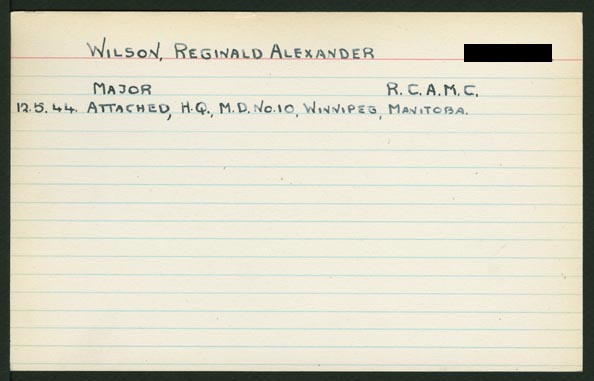 WILSON, REGINALD ALEXANDER
MAJOR R.C.A.M.C.
12.5.44. ATTACHED, H.Q., M.D. NO.10, WINNIPEG, MANITOBA.